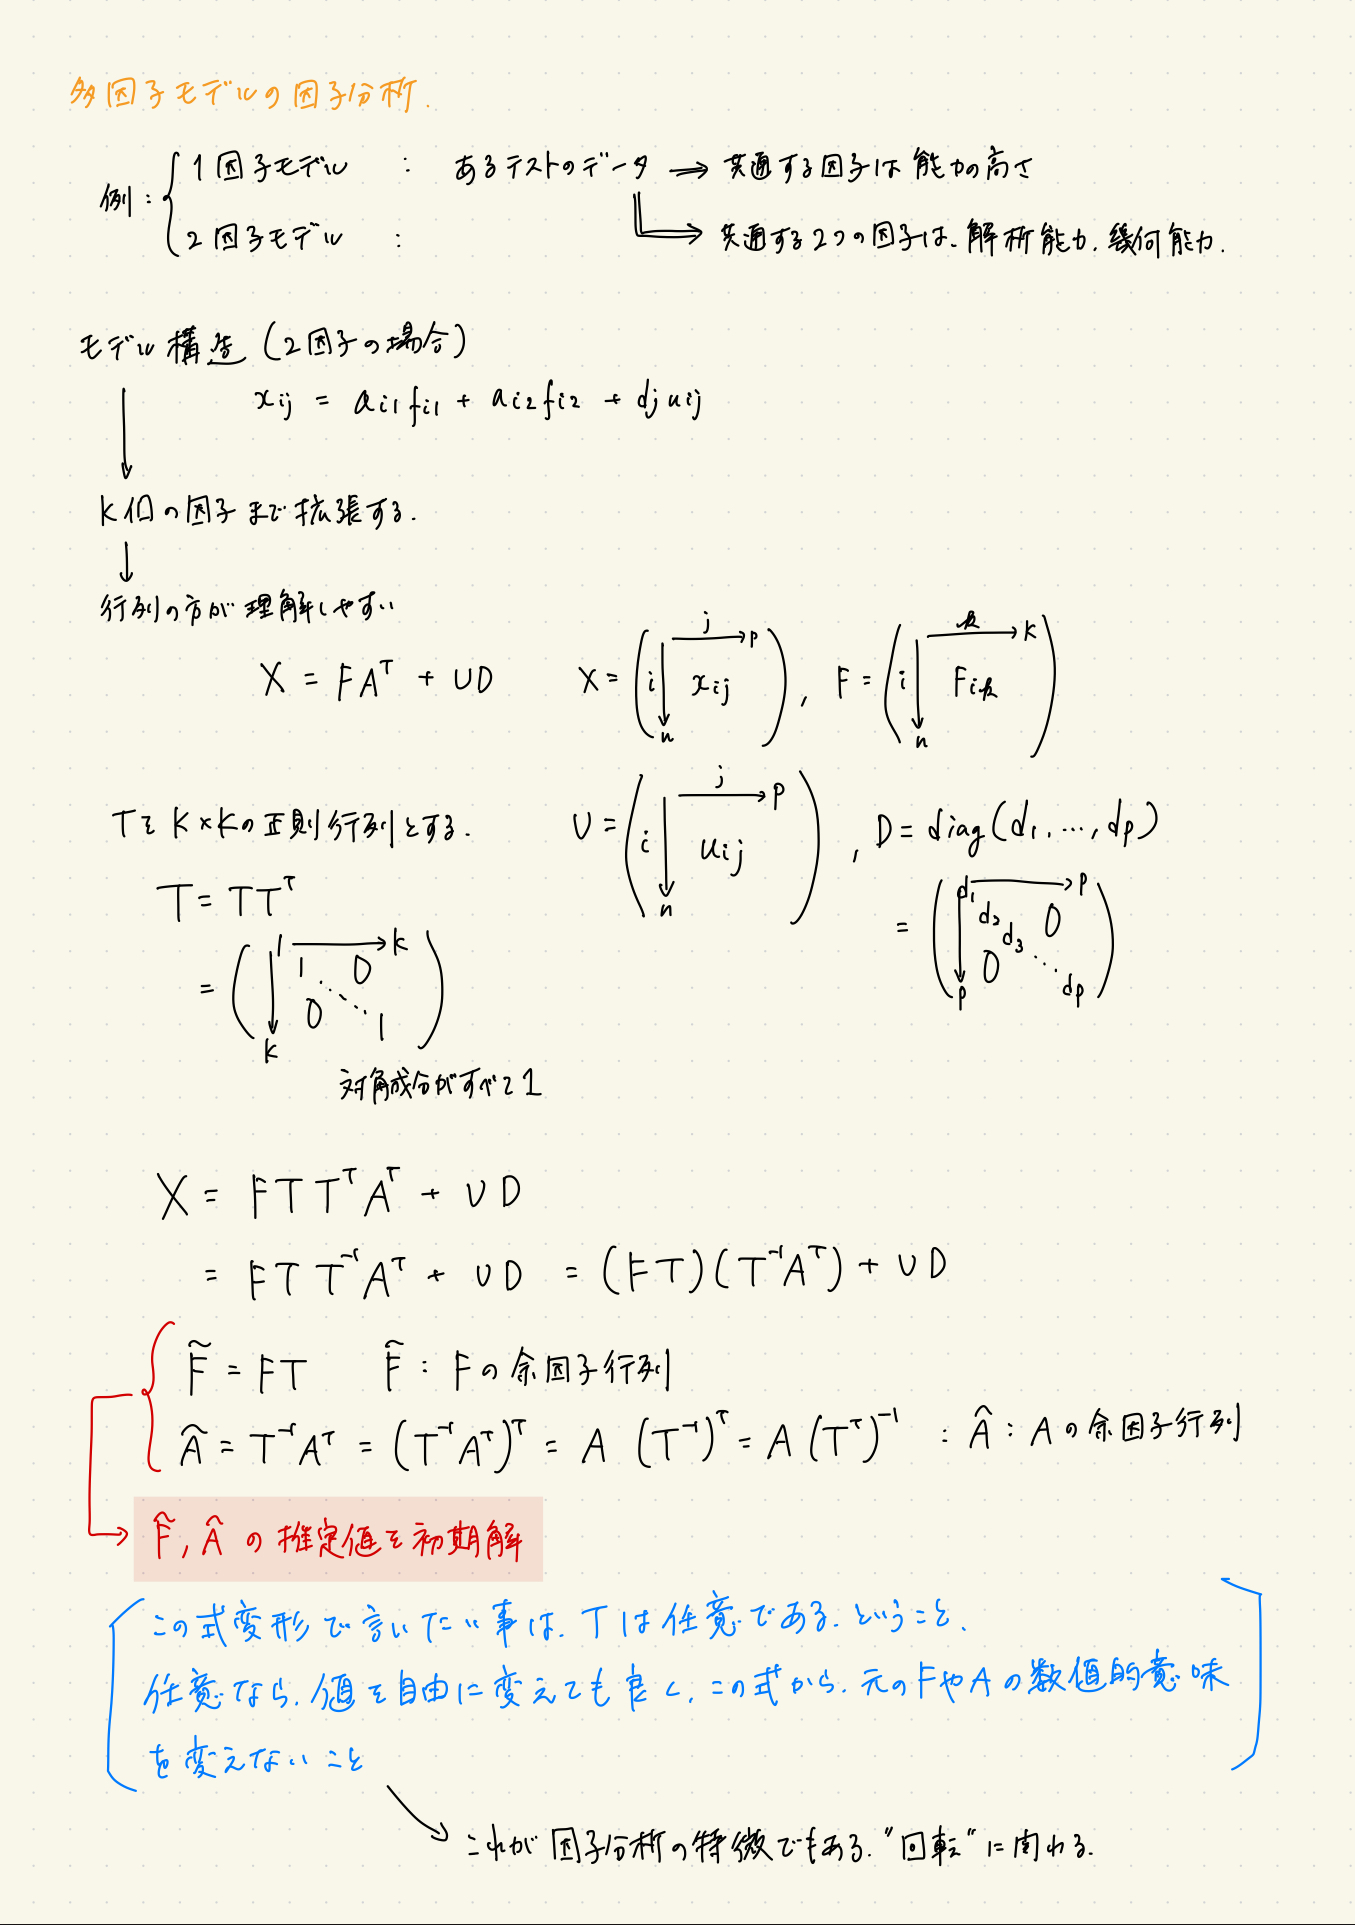 多因子モデルの因子分析.
例: { 1因子モデル : あるテストのデータ → 共通する因子は能力の高さ
2因子モデル : → 共通する2つの因子は、解析能力、幾何能力.
モデル構造 (2因子の場合)
x_ij = a_i1 f_i1 + a_i2 f_i2 + d_j u_ij
↓
K個の因子まで拡張する.
↓
行列の方が理解しやすい
X = FA^T + UD X = ( i↓n j→p x_ij ), F = ( i↓n k→K F_ik )
Tを K×Kの正則行列とする. U = ( i↓n j→p u_ij ), D = diag(d_1, …, d_p)
T = TT^T = ( d_1 d_2 d_3 ⋱ d_p 0 0 →p ↓p )
= ( 1→K ↓K 1 0 0 ⋱ 1 )
対角成分がすべて1
X = FTT^TA^T + UD
= FTT^-1A^T + UD = (FT)(T^-1A^T) + UD
F̃ = FT F̃ : Fの余因子行列
Â = T^-1A^T = (T^-1A^T)^T = A(T^-1)^T = A(T^T)^-1 : Â : Aの余因子行列
→ F̃, Â の推定値を初期解
この式変形で言いたい事は、Tは任意である、ということ.
任意なら、値を自由に変えても良く、この式から、元のFやAの数値的意味
を変えないこと
これが因子分析の特徴でもある、"回転"に関わる.